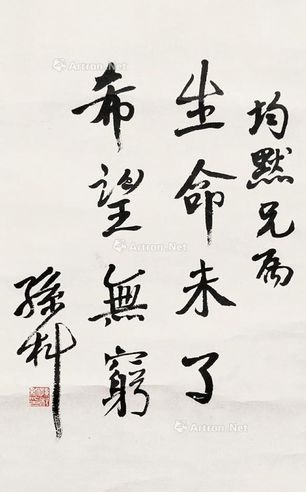 均默兄属
生命未了
希望無窮
孫科
Artron.Net
Artron.Net
Artron.Net